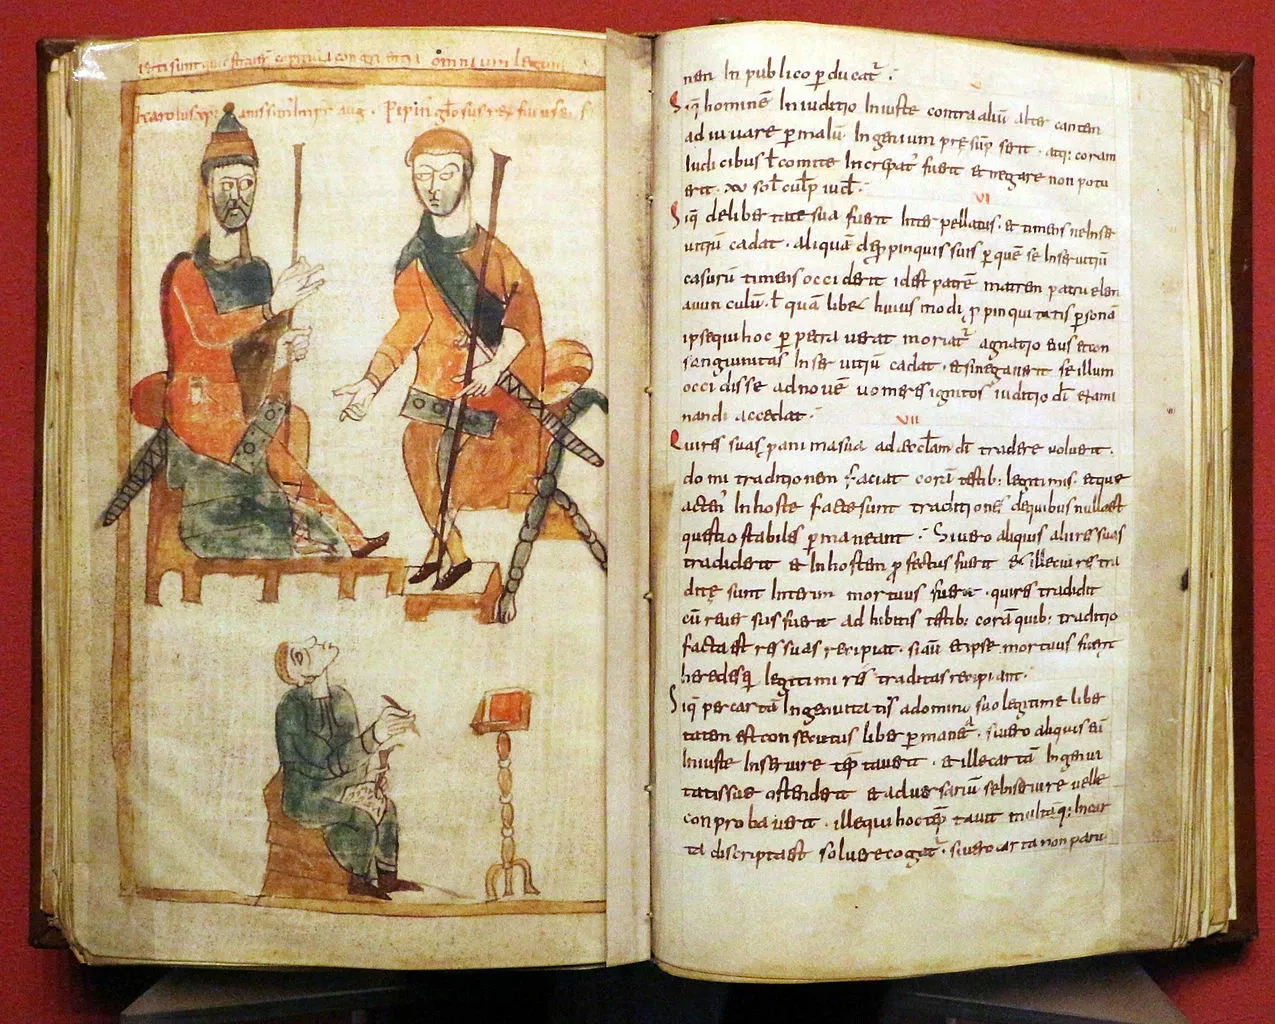 isti sunt que
omnium legum
karolus xp̄ianissim' Impr̄ aug. Pipin' gl̄osus rex filius ei' s
nen In publico ꝑducat̄ .
V
Siq̄ hominē In iuditio Iniuste contra aliū alter cantem
adiuuare ꝑ malū Ingenium presūpserit . atq; coram
Iudicibus ł comite Increpat' fuerit et negare non potu
erit . xv sol̄ culp̄ iud̄ .
VI
Siq̄ de libertate sua fuerit Inter pellatus . et timens ne Inser
uitiū cadat . aliquā de ꝓpinquis suis ꝑ quē se Inseruitiū
casurū timens occiderit idest patrē matrem patruelem
auunculū . ł quālibet huiusmodi ꝓpinquitatis ꝑsonā
ipse qui hoc ꝑpetrauerat moriat̄ agnatio eius et con
sanguinitas Inseruitiū cadat . et si negauerit se illum
occidisse ad nouē uomeres ignitos iuditio dī exami
nandi accedat .
VII
Qui res suas ꝓ anima sua ad eccl̄am dī tradere uoluerit .
domi traditionem faciat corā testib; legitimis . et que
acten' In hoste facte sunt traditiones de quibus nulla est
questio stabiles ꝑmaneant . Si uero aliquis alii res suas
tradiderit et In hostem ꝓfectus fuerit et ille cui res tra
dite sunt Interim mortuus fuerit . qui res tradidit
cū reuersus fuerit adhibitis testib; corā quib; traditio
facta est res suas recipiat . si aū et ipse mortuus fuerit
heredes ei' legitimi res traditas recipiant .
Siq̄ per cartā Ingenuitatis a domino suo legitime liber
tatem est consecutus liber ꝑmaneat . si uero aliquis eū
Iniuste Inseruire tēptauerit . et ille cartā Ingenui
tatis sue ostenderit et aduersariū se Inseruire uelle
conprobauerit . ille qui hoc tēptauit multā q; In car
ta discripta est soluere cogat̄ . si uero carta non paru